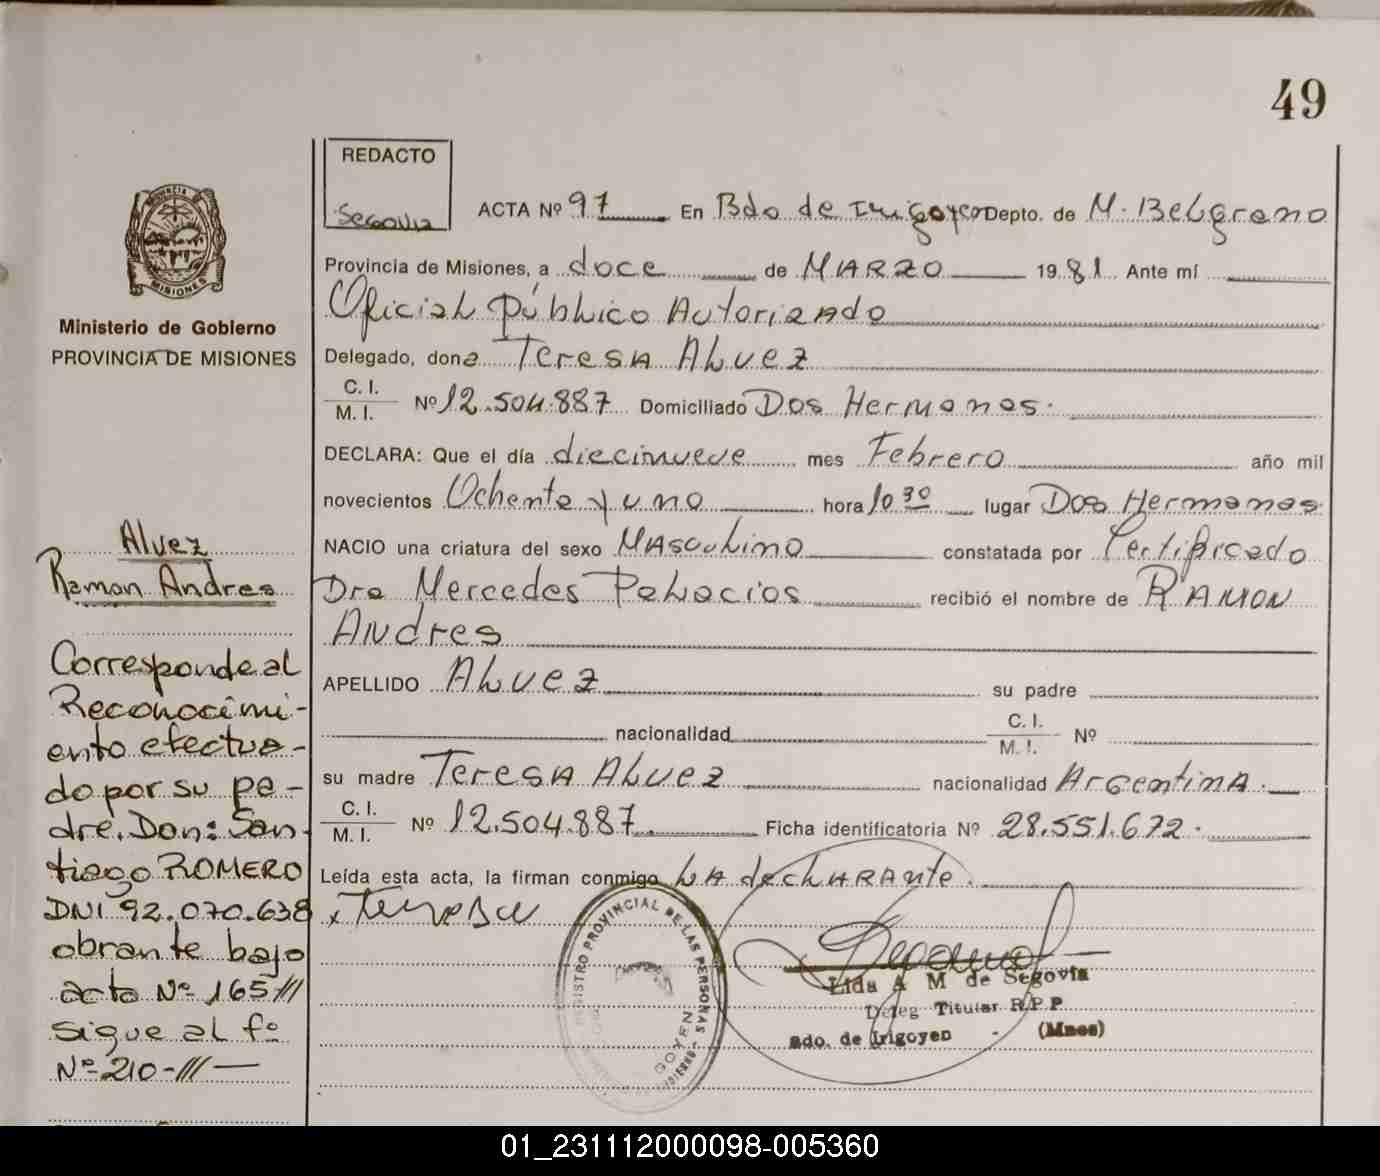 49
REDACTO
Segovia
ACTA Nº 97 En Bdo de Irigoyen Depto. de M. Belgrano
Provincia de Misiones, a doce de MARZO 1981 Ante mí
Oficial Público Autorizado
Delegado, dona Teresa Alvez
C. I.
M. I. Nº 12.504.887 Domiciliado Dos Hermanas.
DECLARA: Que el día diecinueve mes Febrero año mil
novecientos Ochenta y uno hora 10 30 lugar Dos Hermanas
NACIO una criatura del sexo Masculino constatada por Certificado
Dra Mercedes Palacios recibió el nombre de RAMON
Andres
APELLIDO Alvez su padre
nacionalidad C. I. M. I. Nº
su madre Teresa Alvez nacionalidad Argentina.
C. I.
M. I. Nº 12.504.887. Ficha identificatoria Nº 28.551.672.
Leída esta acta, la firman conmigo LA declarante.
Lida A M de Segovia
Deleg Titular R.P.P
Bdo. de Irigoyen - (Mnes)
REGISTRO PROVINCIAL DE LAS PERSONAS
GOYEN
PROVINCIA
MISIONES
Ministerio de Gobierno
PROVINCIA DE MISIONES
Alvez
Ramon Andres
Corresponde al
Reconocimi-
ento efectua-
do por su pa-
dre. Don: San-
tiago ROMERO
DNI 92.070.638
obrante bajo
acta Nº 165///
sigue al fº
Nº 210-///—
01_231112000098-005360